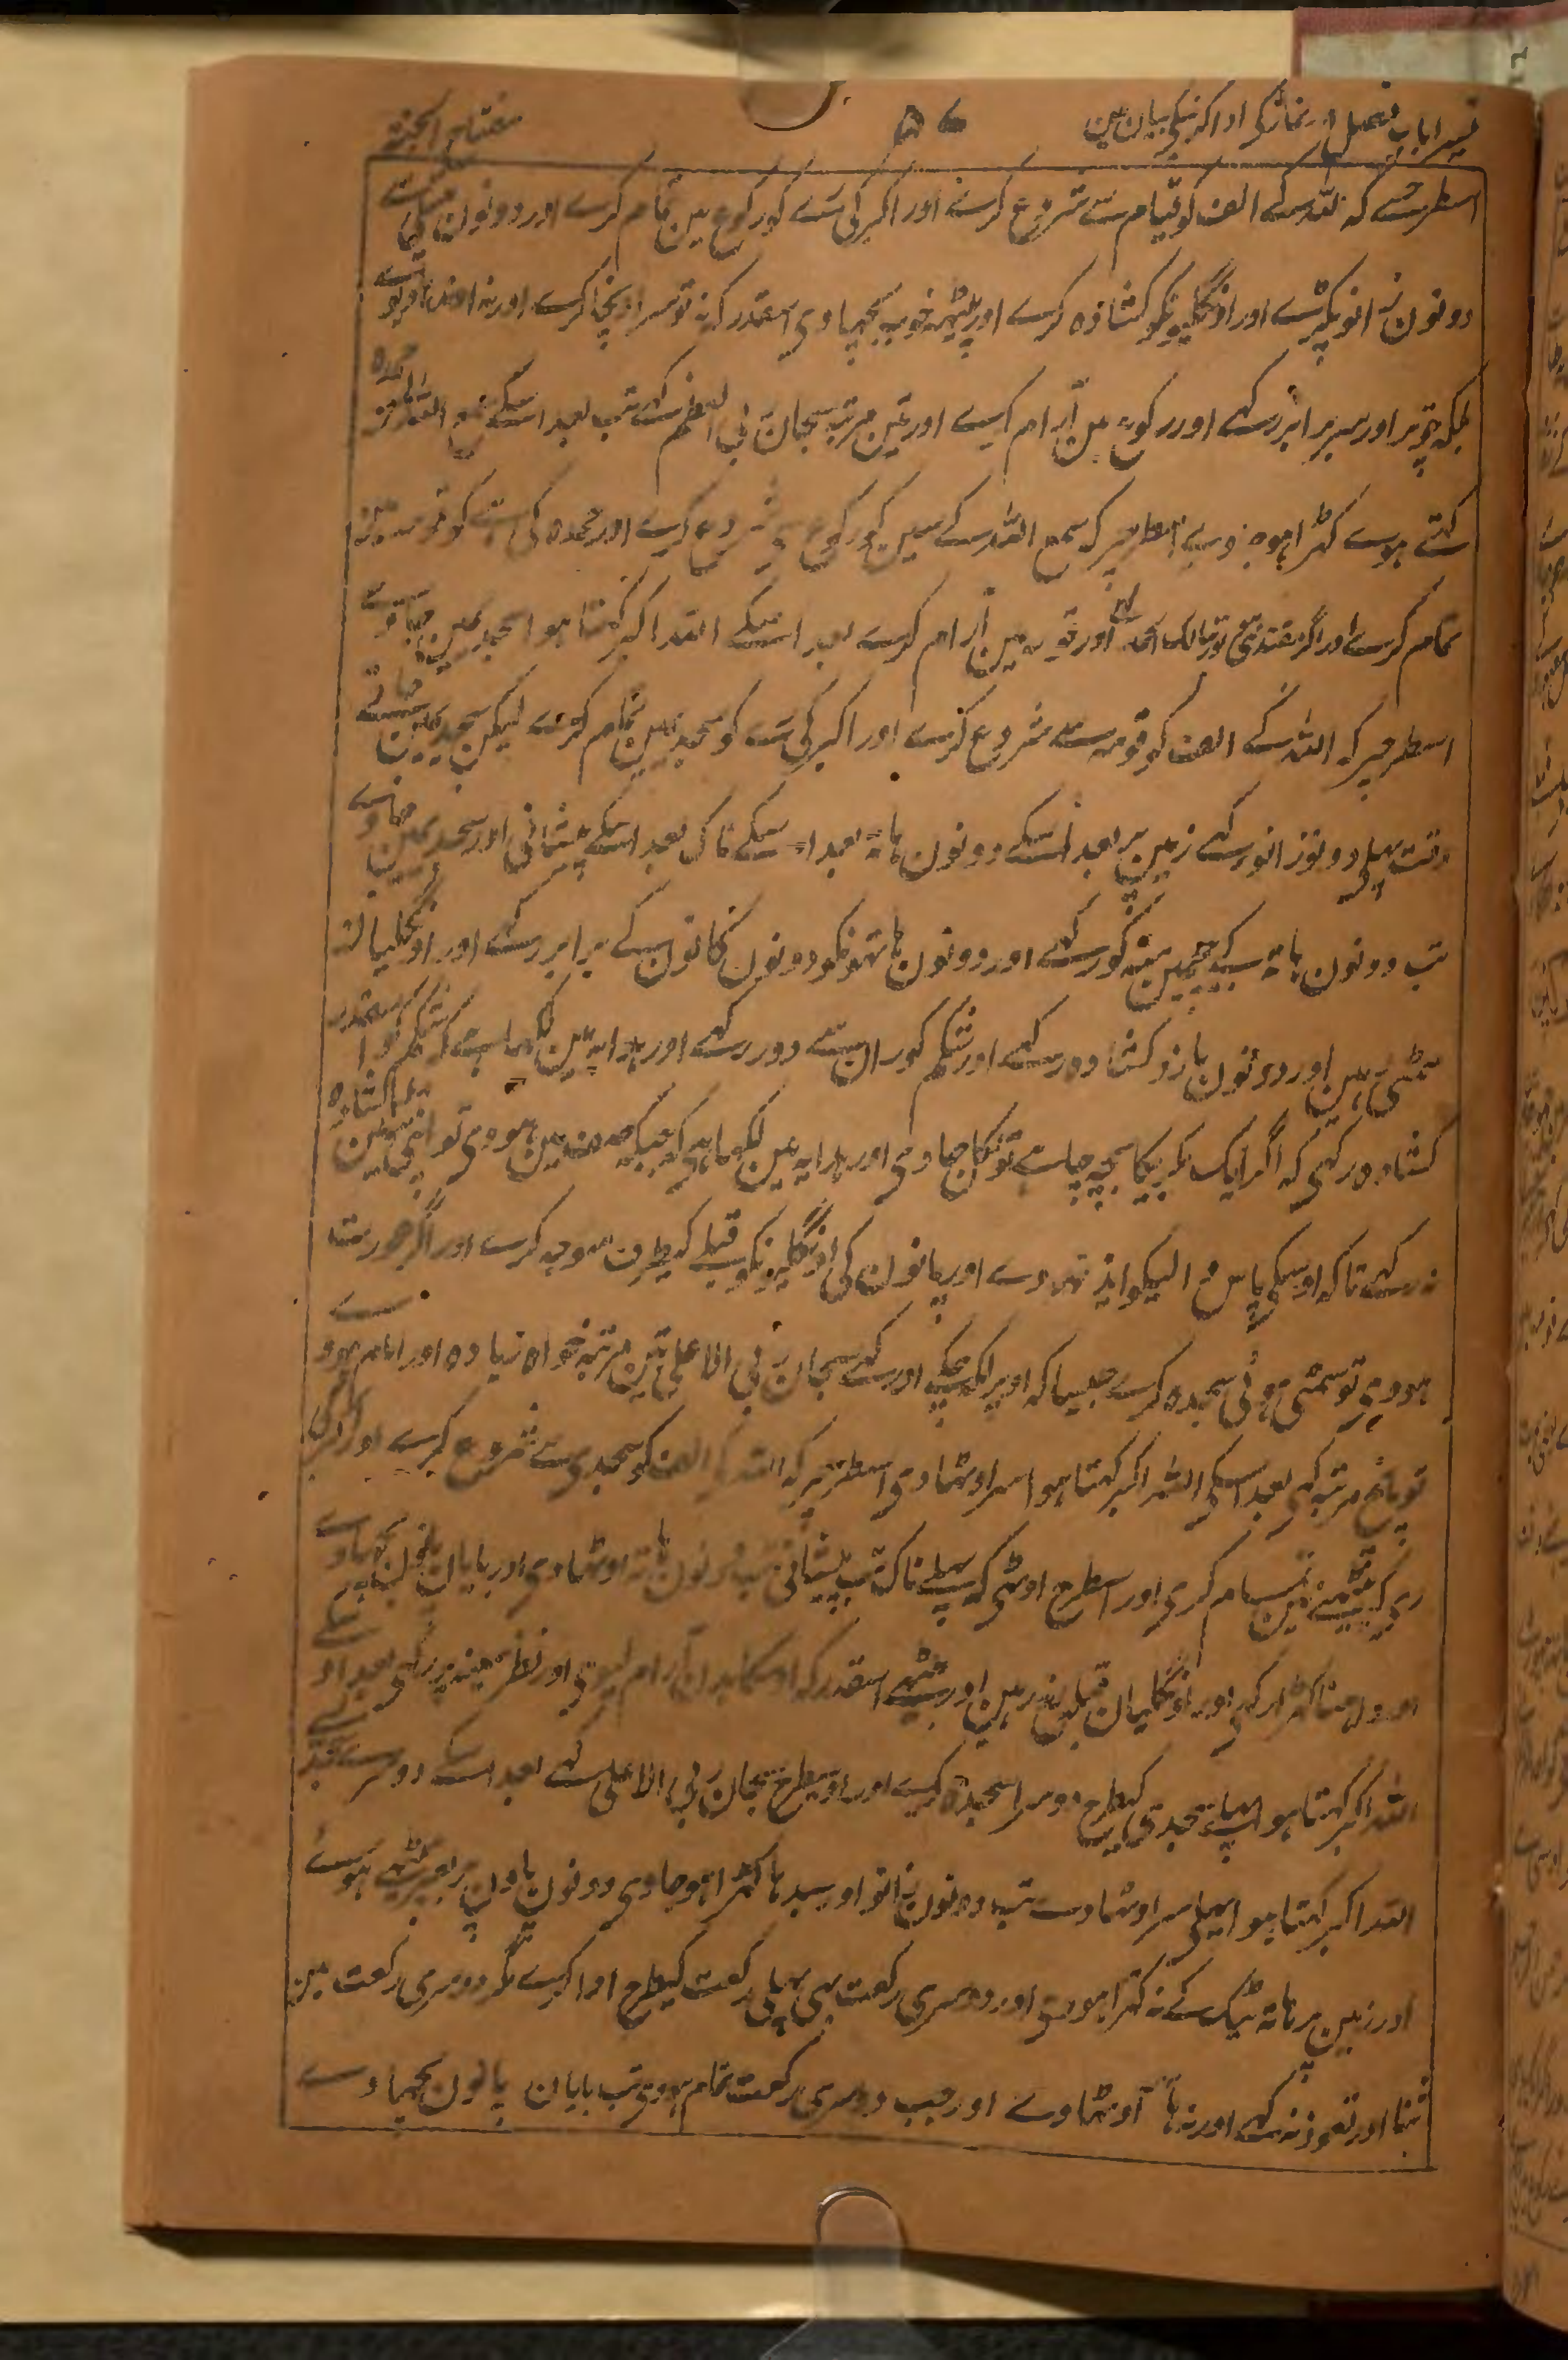 تیسرا باب فصل نمازکی ادا کرنیکی بیان مین ٥٦ مفتاح الجنۃ
اسطرحسے کہ اللہ کے الف کو قیام سے شروع کرے اور اکبر کی رے کو رکوع مین تمام کرے اور دونون
دونون زانو پکڑے اور اونگلیونکو کشادہ کرے اور پیٹھ خوب بچھاوی اسقدر کہ نہ تو سر اونچا کرے اور نہ اوندہاوے
بلکہ چوتڑ اور سر برابر رکہے اور رکوع مین آرام کرے اور تین مرتبہ سبحان ربی العظیم کہے تب بعد اسکے سمع اللہ لمن حمدہ
کہتے ہوے کہڑا ہووے اسطرحپر کہ سمع اللہ کے سین کو رکوع سے شروع کرے اور حمدہ کی ہے کو قومہ مین
تمام کرے اور اگر مقتدی ہے تو ربنا لک الحمد اور قومہ مین آرام کرے بعد اسکے اللہ اکبر کہتا ہوا سجدیمین جاوے
اسطرحپر کہ اللہ کے الف کو قومہ سے شروع کرے اور اکبر کی رے کو سجدیمین تمام کرے لیکن سجدیمین جاتے
وقت پہلے دونوزانو رکہے زمین پر بعد اسکے دونون ہاتہ بعد اسکے ناک بعد اسکے پیشانی اور سجدیمین جاوے
تب دونون ہاتہ کے بیچمین منہ کو رکہے اور دونون ہاتہونکو دونون کانون کے برابر رکہے اور اونگلیان
سمٹی رہین اور دونون بازو کشادہ رکہے اور شکم کو ران سے دور رکہے اور ہدایہ مین لکہا ہے کہ شکم کو اسقدر
کشادہ رکہی کہ اگر ایک بکریکا بچہ چاہے تو نکل جاوی اور ہدایہ مین لکہا ہی کہ جبکہ صف مین ہووی تو اپنی تئین کشادہ
نہ رکہے تا کہ اوسکی پاس والیکو ایذا نہووے اور پانون کی اونگلیونکو قبلے کیطرف متوجہ کرے اور اگر عورت
ہووے تو سمٹی ہوئی سجدہ کرے جیسا کہ اوپر لکہہ چکے اور کہے سبحان ربی الاعلی تین مرتبہ خواہ زیادہ اور امام ہووے
تو پانچ مرتبہ کہی بعد اسکی اللہ اکبر کہتا ہوا سر اوٹہاوی اسطرحپر کہ اللہ کے الف کو سجدی سے شروع کرے اور اکبر کی
ری کو بیٹہنے مین تمام کری اور اسطرح اوٹہی کہ پہلے ناک تب پیشانی تب دونون ہاتہ اوٹہاوی اور بایان پانون بچہاوے
اور داہنا کہڑا رکہی اور اونگلیان قبلہ رخ رہین اور بیٹہے اسقدر کہ اوسکا بدن آرام لیوی اور نظر سینہ پر رکہی بعد اوسکے
اللہ اکبر کہتا ہوا پہلے سجدی کیطرح دوسرا سجدہ کرے اور اوسیطرح سبحان ربی الاعلی کہے بعد اسکے دوسرے سجدیسے
اللہ اکبر کہتا ہوا پہلی سر اوٹہاوے تب دونون زانو اور سیدہا کہڑا ہو جاوی دونون پاون پر بغیر بیٹہے ہوئے
اور زمین پر ہاتہ ٹیک کے نہ کہڑا ہووی اور دوسری رکعت بہی پہلی رکعت کیطرح ادا کرے مگر دوسری رکعت مین
ثنا اور تعوذ نہ کہے اور نہ ہاتہ اوٹہاوے اور جب دوسری رکعت تمام ہووی تب بایان پانون بچہاوے